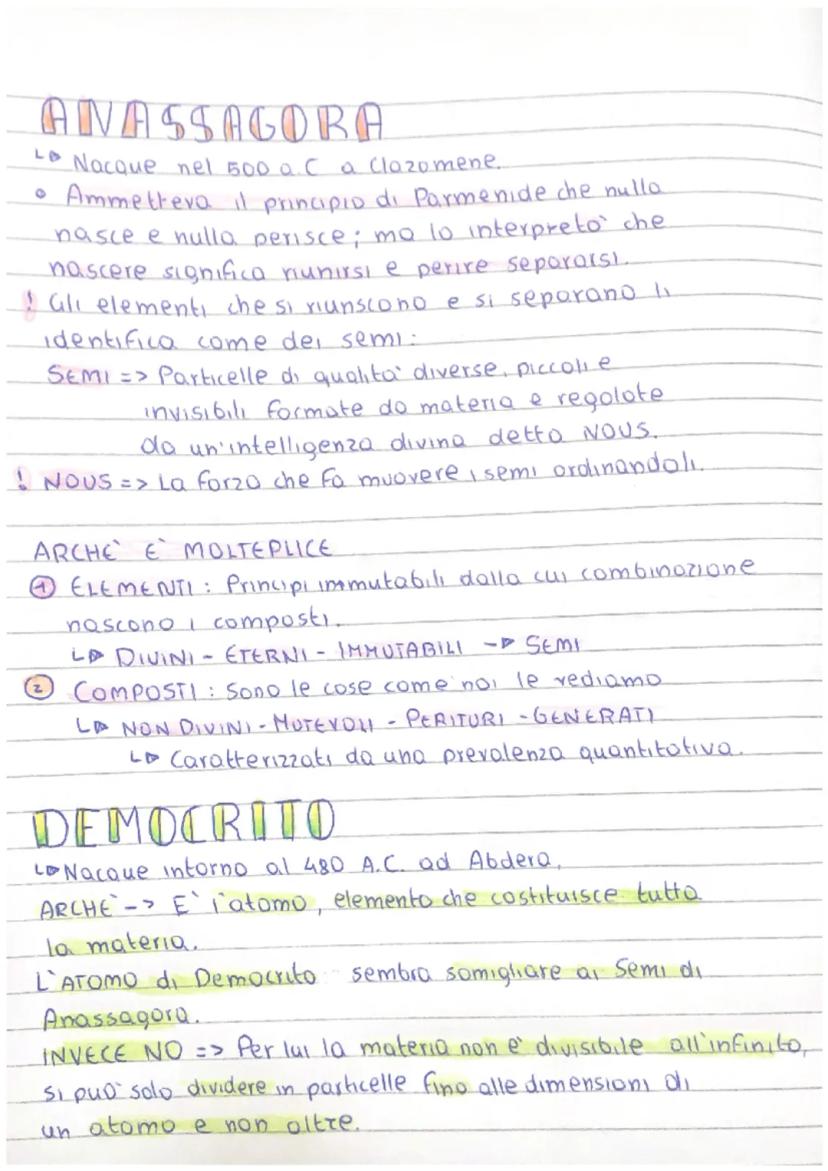 ANASSAGORA
↳ Nacque nel 500 a.C a Clazomene.
• Ammetteva il principio di Parmenide che nulla
nasce e nulla perisce; ma lo interpretò che
nascere significa riunirsi e perire separarsi.
! Gli elementi che si riunscono e si separano li
identifica come dei semi:
SEMI => Particelle di qualità diverse, piccoli e
invisibili formate da materia e regolate
da un'intelligenza divina detta NOUS.
! NOUS => La forza che fa muovere i semi ordinandoli.
ARCHÈ È MOLTEPLICE
1 ELEMENTI: Principi immutabili dalla cui combinazione
nascono i composti.
↳ DIVINI - ETERNI - IMMUTABILI -> SEMI
2 COMPOSTI: sono le cose come noi le vediamo
↳ NON DIVINI - MUTEVOLI - PERITURI - GENERATI
↳ Caratterizzati da una prevalenza quantitativa.
DEMOCRITO
↳ Nacque intorno al 480 A.C. ad Abdera.
ARCHÈ -> È l'atomo, elemento che costituisce tutta
la materia.
L'ATOMO di Democrito sembra somigliare ai Semi di
Anassagora.
INVECE NO => Per lui la materia non è divisibile all'infinito,
si può solo dividere in particelle fino alle dimensioni di
un atomo e non oltre.